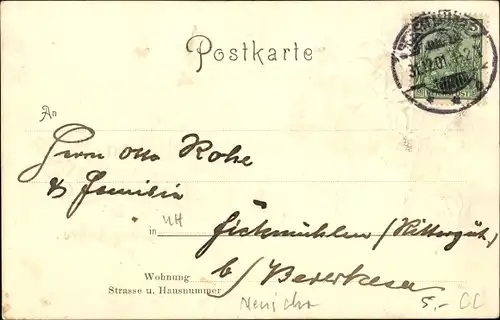 Postkarte
An
Herrn Otto Rohe
& Familie
in Fickmühlen (Rittergut)
b/ Bederkesa
Wohnung
Strasse u. Hausnummer
Neujahr
31.12.01